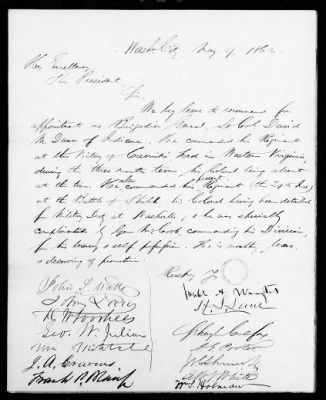 Wash. City May 9. 1862.
His Excellency
The President
Sir
We beg leave to recommend for
appointment as Brigadier General, Lt Col David
M. Dunn of Indiana. He commanded his Regiment
at the Victory of Carrick's Ford in Western Virginia
during the three months term, his Colonel being absent
at the time. He commanded his Regiment (the 29th Ind)
at the Battle of Shiloh, his Colonel having been detailed
for Military Duty at Nashville; & he was specially
complimented by Gen McCook, commanding his Division,
for his bravery & self possession. He is worthy, brave
& deserving of promotion.
Respectfully
John P.
D W Voorhees
Geo. W. Julian
Wm Mitchell
J. A. Cravens
Joseph A. Wright
H. S. Lane
Schuyler Colfax
A. G. Porter
W. S. Holman